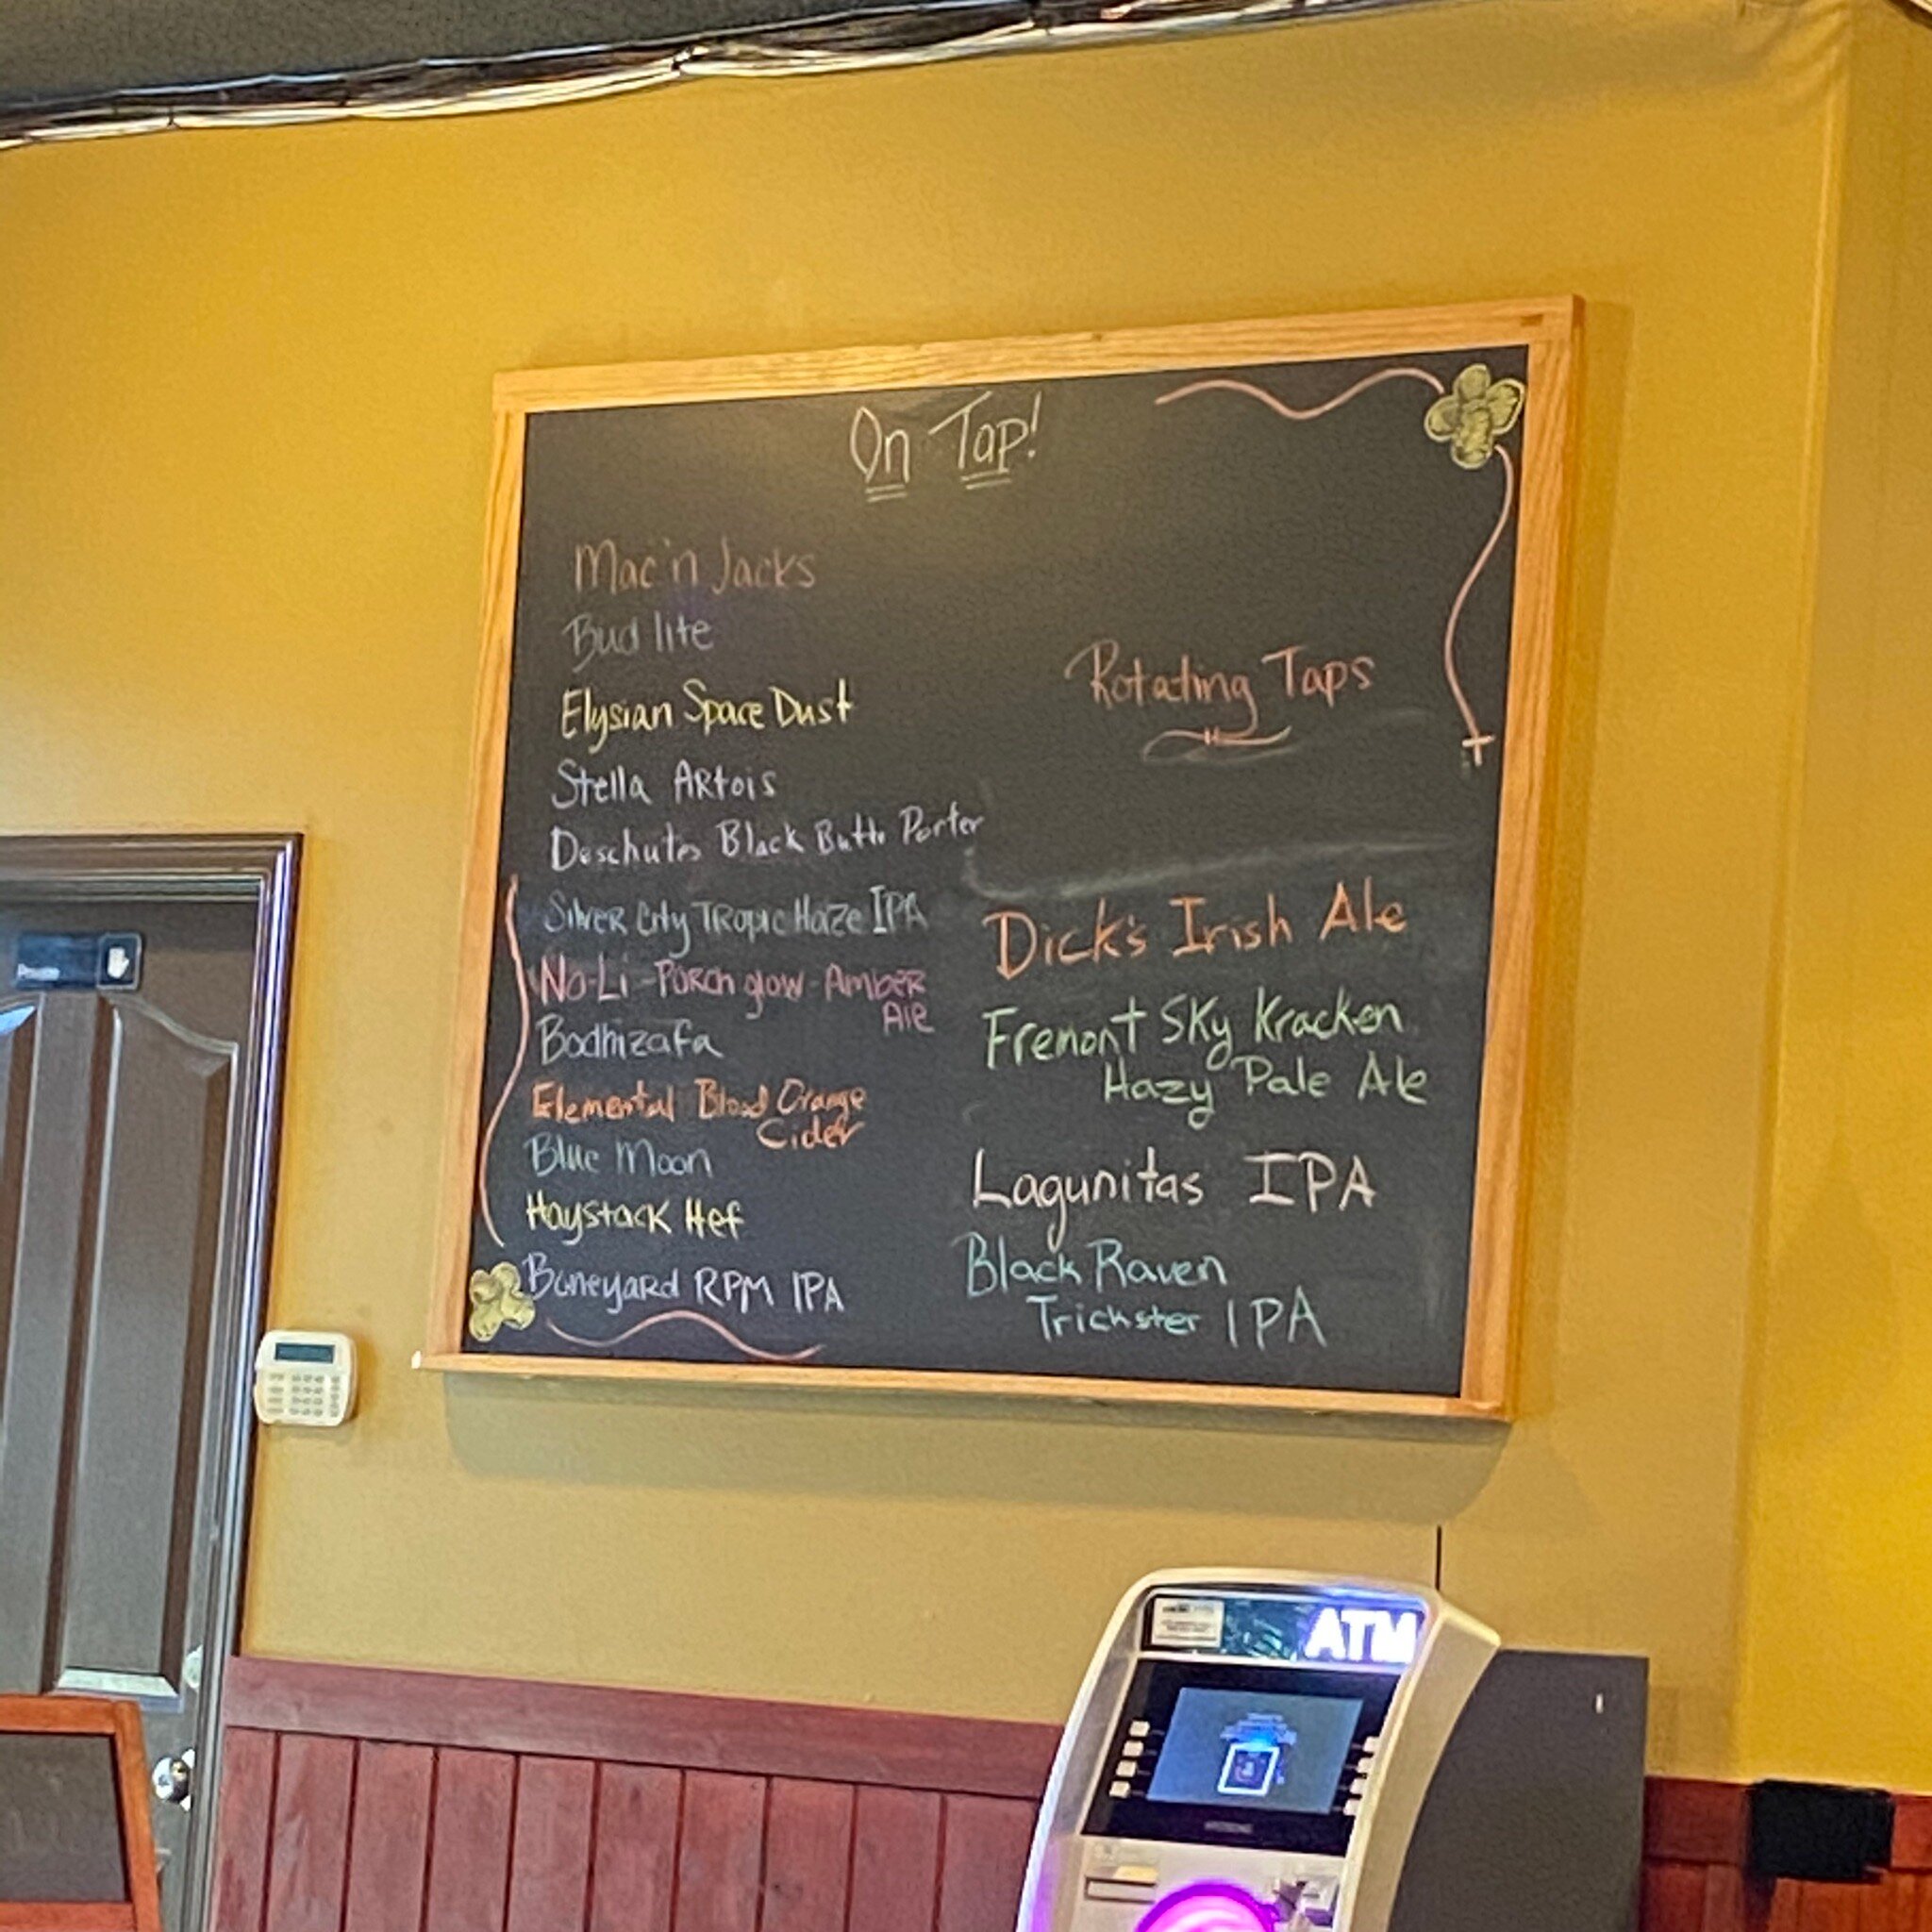 On Tap!
Mac'n Jacks
Bud lite
Elysian Space Dust
Stella Artois
Deschutes Black Butte Porter
Silver City Tropic Haze IPA
No-Li - Porch glow - Amber
Ale
Bodhizafa
Elemental Blood Orange
Cider
Blue Moon
Haystack Hef
Boneyard RPM IPA
Rotating Taps
Dick's Irish Ale
Fremont Sky Kracken
Hazy Pale Ale
Lagunitas IPA
Black Raven
Trickster IPA
ATM